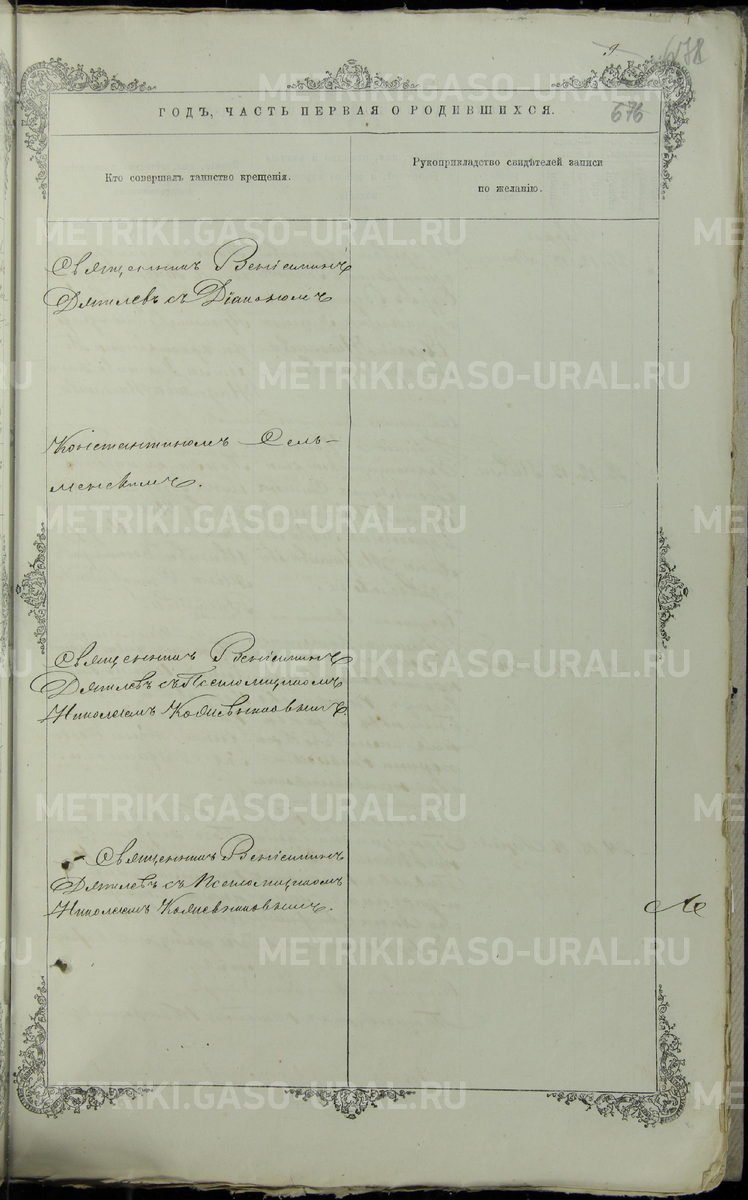 9
678
676
ГОДЪ, ЧАСТЬ ПЕРВАЯ О РОДИВШИХСЯ.
Кто совершалъ таинство крещенія.
Рукоприкладство свидѣтелей записи
по желанію.
Священникъ Веніаминъ
Дягилевъ съ Діакономъ
Константиномъ Сель-
менскимъ.
Священникъ Веніаминъ
Дягилевъ съ Псаломщикомъ
Николаемъ
Священникъ Веніаминъ
Дягилевъ съ Псаломщикомъ
Николаемъ
METRIKI.GASO-URAL.RU